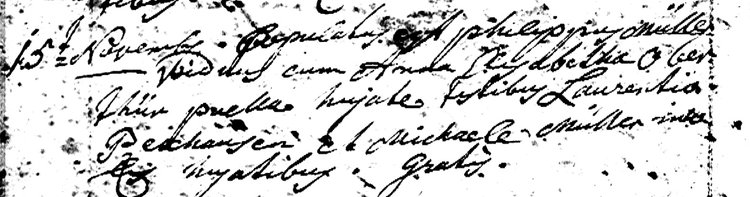 15ᵗ Novemb. Copulatus est philippus Müller
viduus cum Anna Elysabetha Ober
thür puella hujate testibus Laurentio
Peckhänser et Michaele Müller
hyatibus. Gratis.